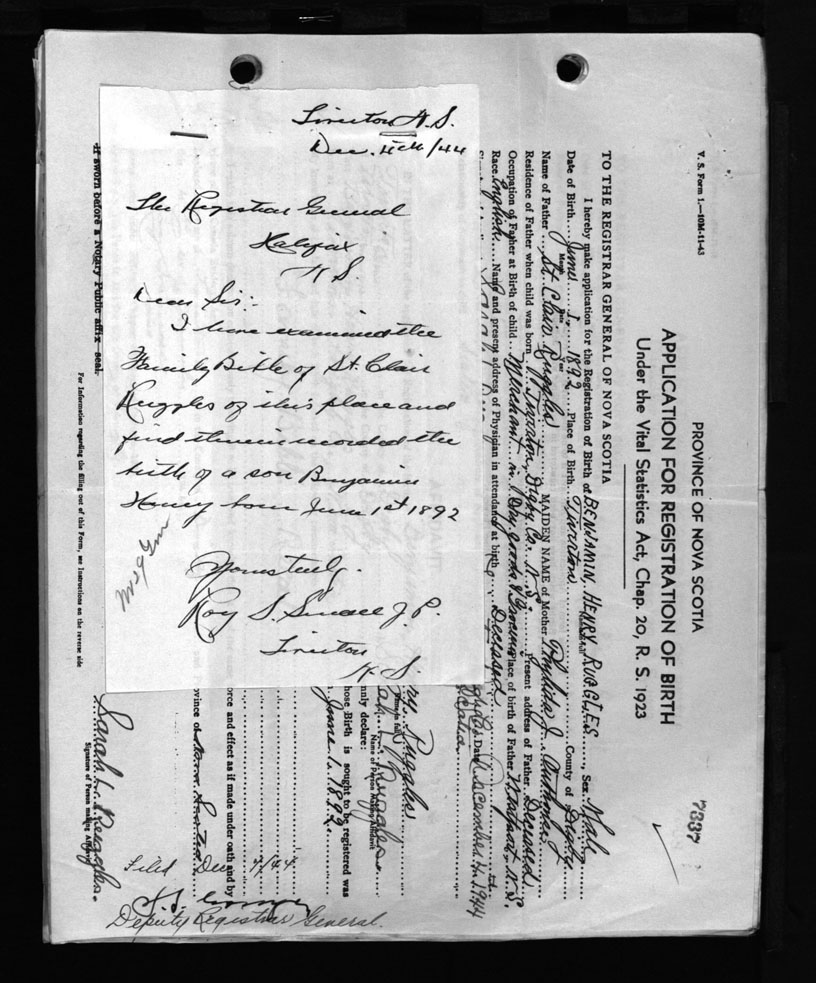 Tiverton N.S.
Dec. 4th/44
The Registrar General
Halifax
N.S.
Dear Sir:-
I have examined the
Family Bible of St. Clair
Ruggles of this place and
find therein recorded the
birth of a son Benjamin
Henry born June 1st 1892
Yours truly.
Roy S. Small J.P.
Tiverton
N.S.
V. S. Form 1.—10M-11-43
7337
PROVINCE OF NOVA SCOTIA
APPLICATION FOR REGISTRATION OF BIRTH
Under the Vital Statistics Act, Chap. 20, R. S. 1923
TO THE REGISTRAR GENERAL OF NOVA SCOTIA
I hereby make application for the Registration of Birth of BENJAMIN, HENRY RUGGLES, Sex Male
Date of Birth June 1, 1892 Place of Birth Tiverton County of Digby
Month Date Year
Name of Father St. Clair Ruggles MAIDEN NAME of Mother
Residence of Father when child was born Tiverton, Digby Co. N.S. Present address of Father Deceased
Occupation of Father at Birth of child Merchant in Dry goods & Groceries Place of birth of Father Westport N.S.
Race English Name and present address of Physician in attendance at birth Deceased
Date December 4, 1944
Ruggles
Ruggles
Name of Person Making Affidavit
nly declare:
hose Birth is sought to be registered was
June 1. 1892.
orce and effect as if made under oath and by
rovince of Nova Scotia
Sarah L. Ruggles.
Signature of Person making Affidavit
Filed Dec 7/44
Deputy Registrar General.
If sworn before a Notary Public affix seal.
For Information regarding the filling out of this Form, see Instructions on the reverse side